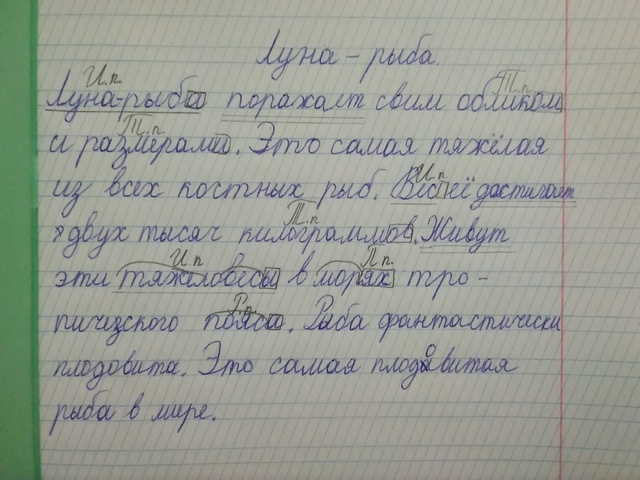 Луна – рыба.
И.п. Т.п.
Луна-рыба поражает свим обликом
Т.п.
и размерами. Это самая тяжёлая
И.п.
из всех костных рыб. Вес её достигает
Т.п
двух тысяч килограммов. Живут
И.п П.п
эти тяжеловесы в морях тро-
Р.п.
пичезского пояса. Рыба фантастически
плодовита. Это самая плодовитая
рыба в мире.